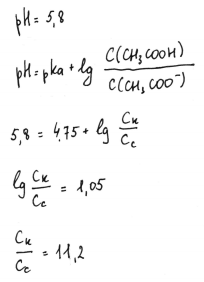 pH = 5,8
pH = pka + lg C(CH₃COOH) / C(CH₃COO⁻)
5,8 = 4.75 + lg Cк / Cc
lg Cк / Cc = 1,05
Cк / Cc = 11,2